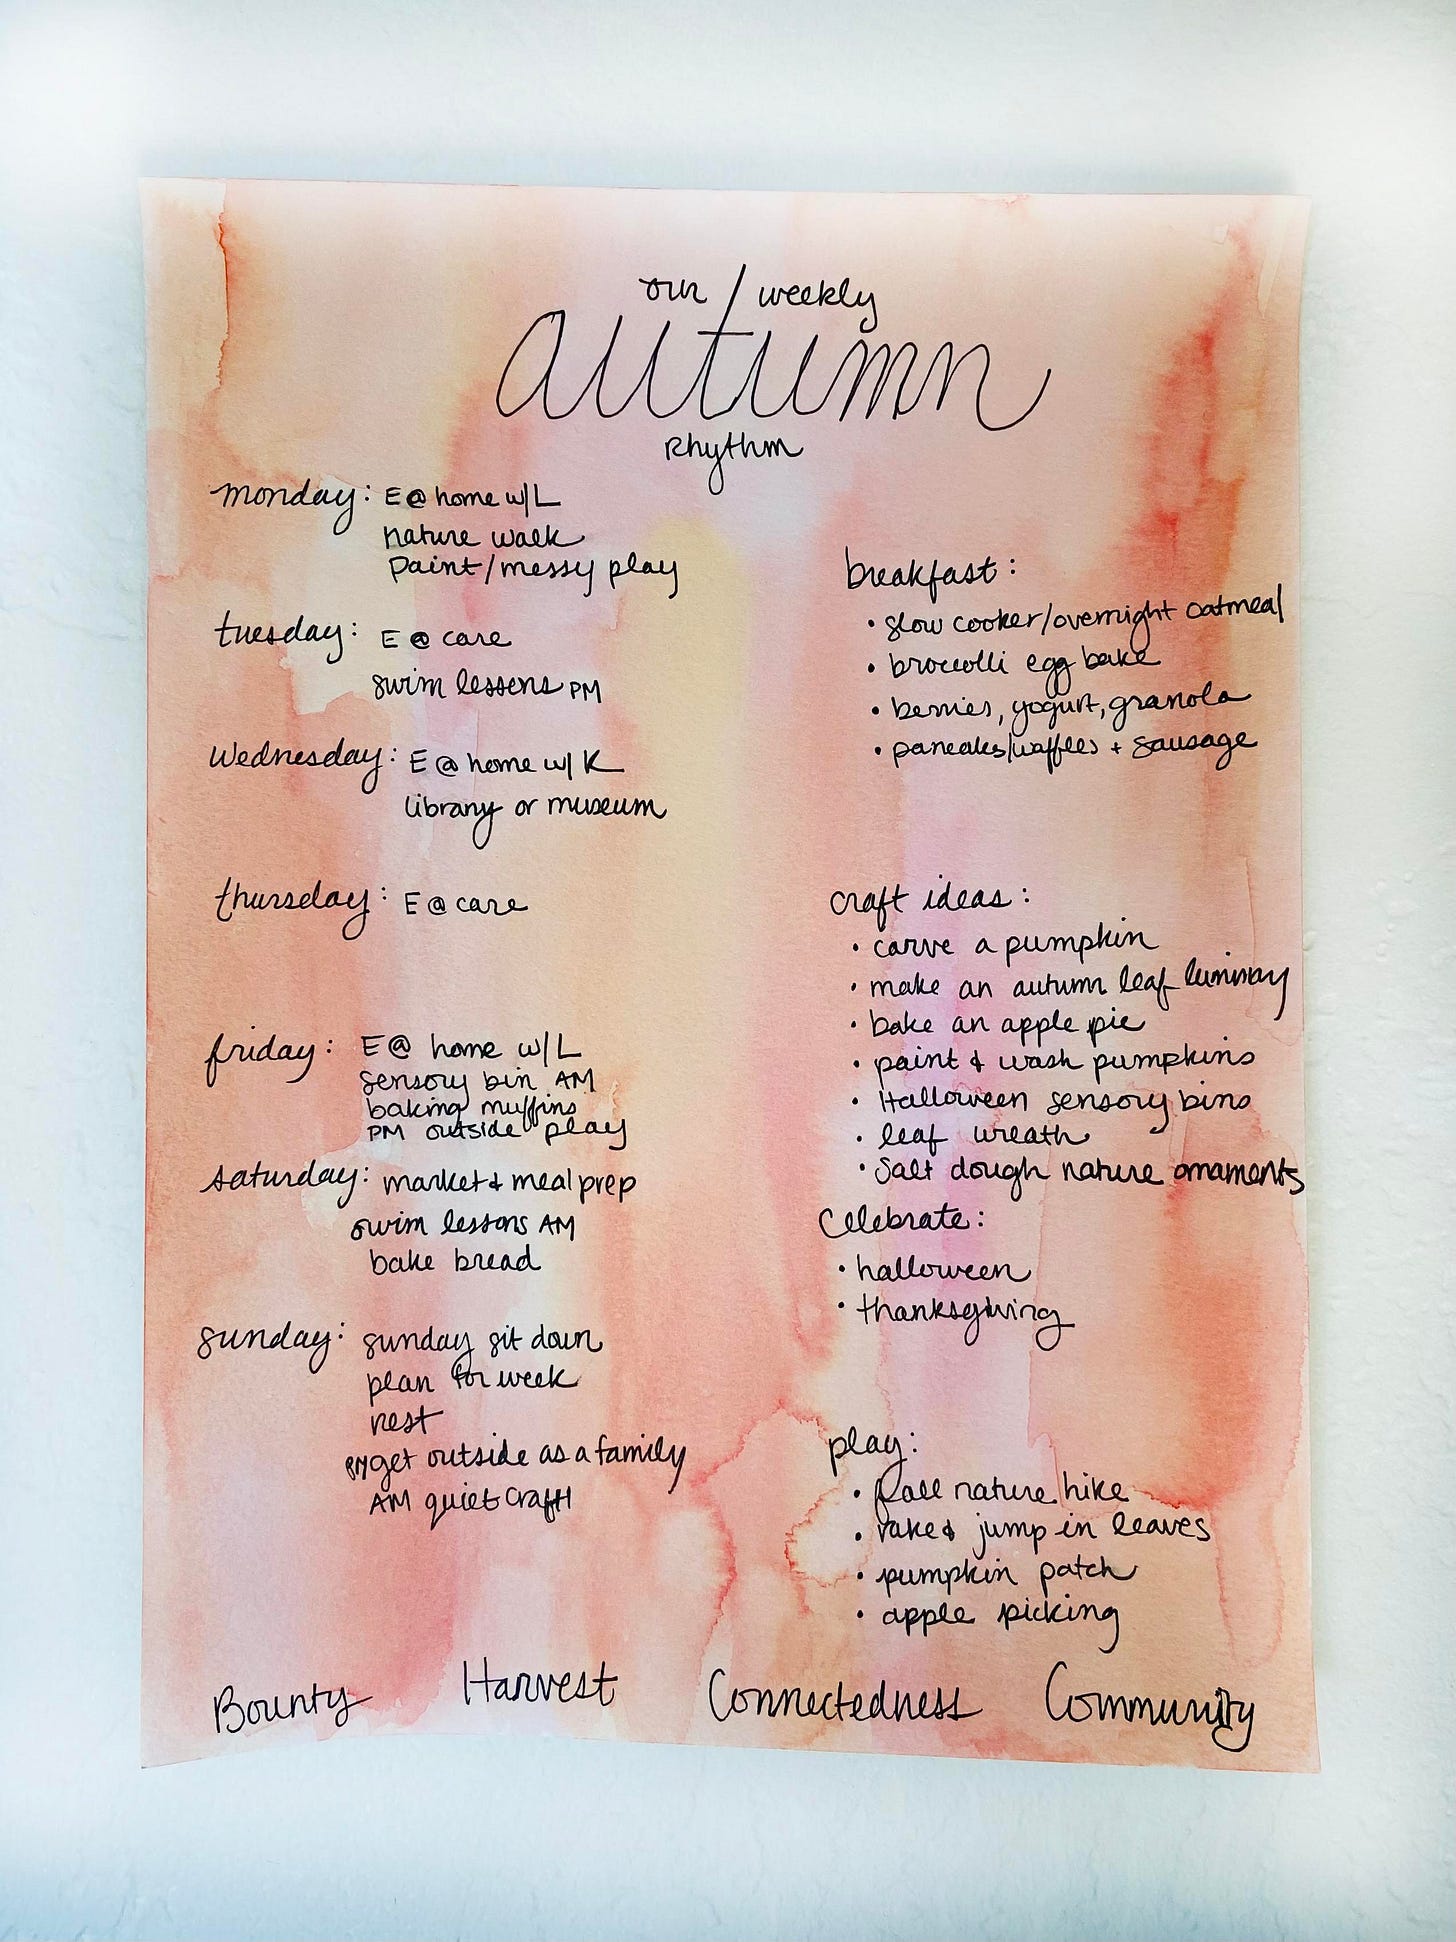 our weekly
autumn
Rhythm
monday: E @ home w/ L
nature walk
paint/messy play
tuesday: E @ care
swim lessons PM
wednesday: E @ home w/ K
library or museum
thursday: E @ care
friday: E @ home w/ L
sensory bin AM
baking muffins
PM outside play
saturday: market & meal prep
swim lessons AM
bake bread
sunday: sunday sit down
plan for week
rest
PM get outside as a family
AM quiet craft
breakfast:
• slow cooker/overnight oatmeal
• broccolli egg bake
• berries, yogurt, granola
• pancakes/waffles + sausage
craft ideas:
• carve a pumpkin
• make an autumn leaf
• bake an apple pie
• paint & wash pumpkins
• Halloween sensory bins
• leaf wreath
• salt dough nature ornaments
Celebrate:
• halloween
• thanksgiving
play:
• fall nature hike
• rake & jump in leaves
• pumpkin patch
• apple picking
Bounty Harvest Connectedness Community